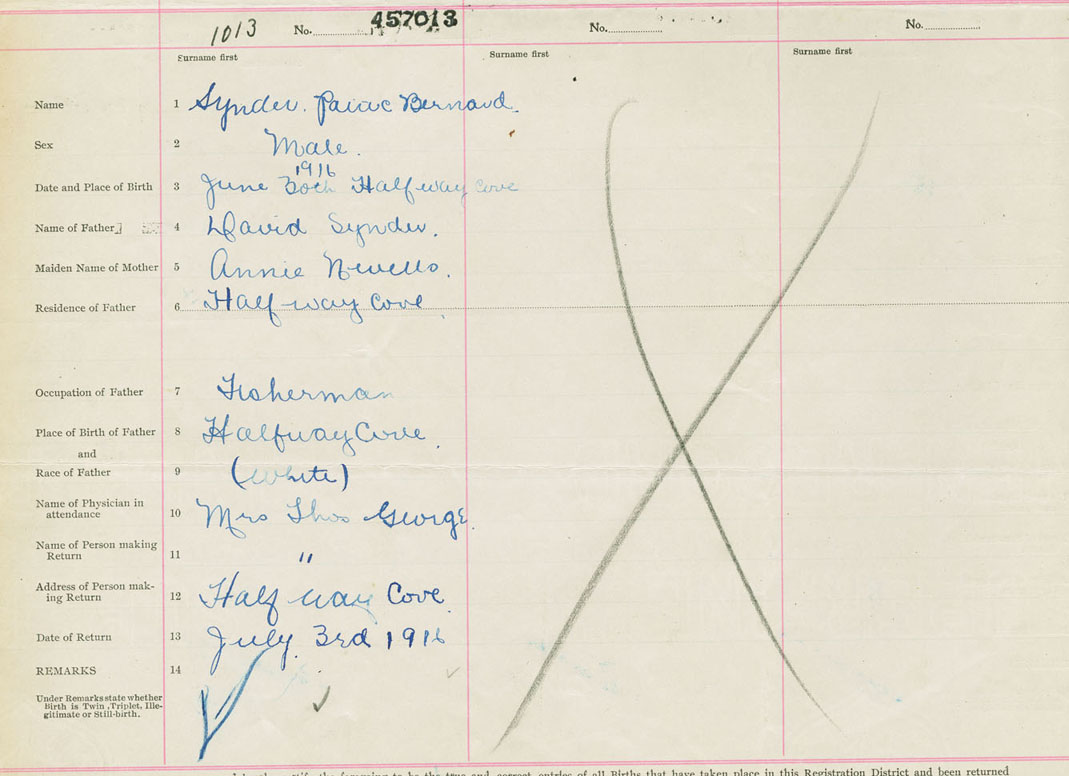 1013 No. 457013
No.
No.
Surname first
Surname first
Surname first
Name 1 Synder. Bernard.
Sex 2 Male.
1916
Date and Place of Birth 3 June 30th Halfway Cove
Name of Father 4 David Synder.
Maiden Name of Mother 5 Annie
Residence of Father 6 Half-way Cove
Occupation of Father 7 Fisherman
Place of Birth of Father 8 Halfway Cove.
and
Race of Father 9 (White)
Name of Physician in
attendance 10 Mrs Thos George.
Name of Person making
Return 11 "
Address of Person mak-
ing Return 12 Half way Cove
Date of Return 13 July 3rd 1916
REMARKS 14
Under Remarks state whether
Birth is Twin, Triplet, Ille-
gitimate or Still-birth.
the foregoing to be the true and correct entries of all Births that have taken place in this Registration District and been returned